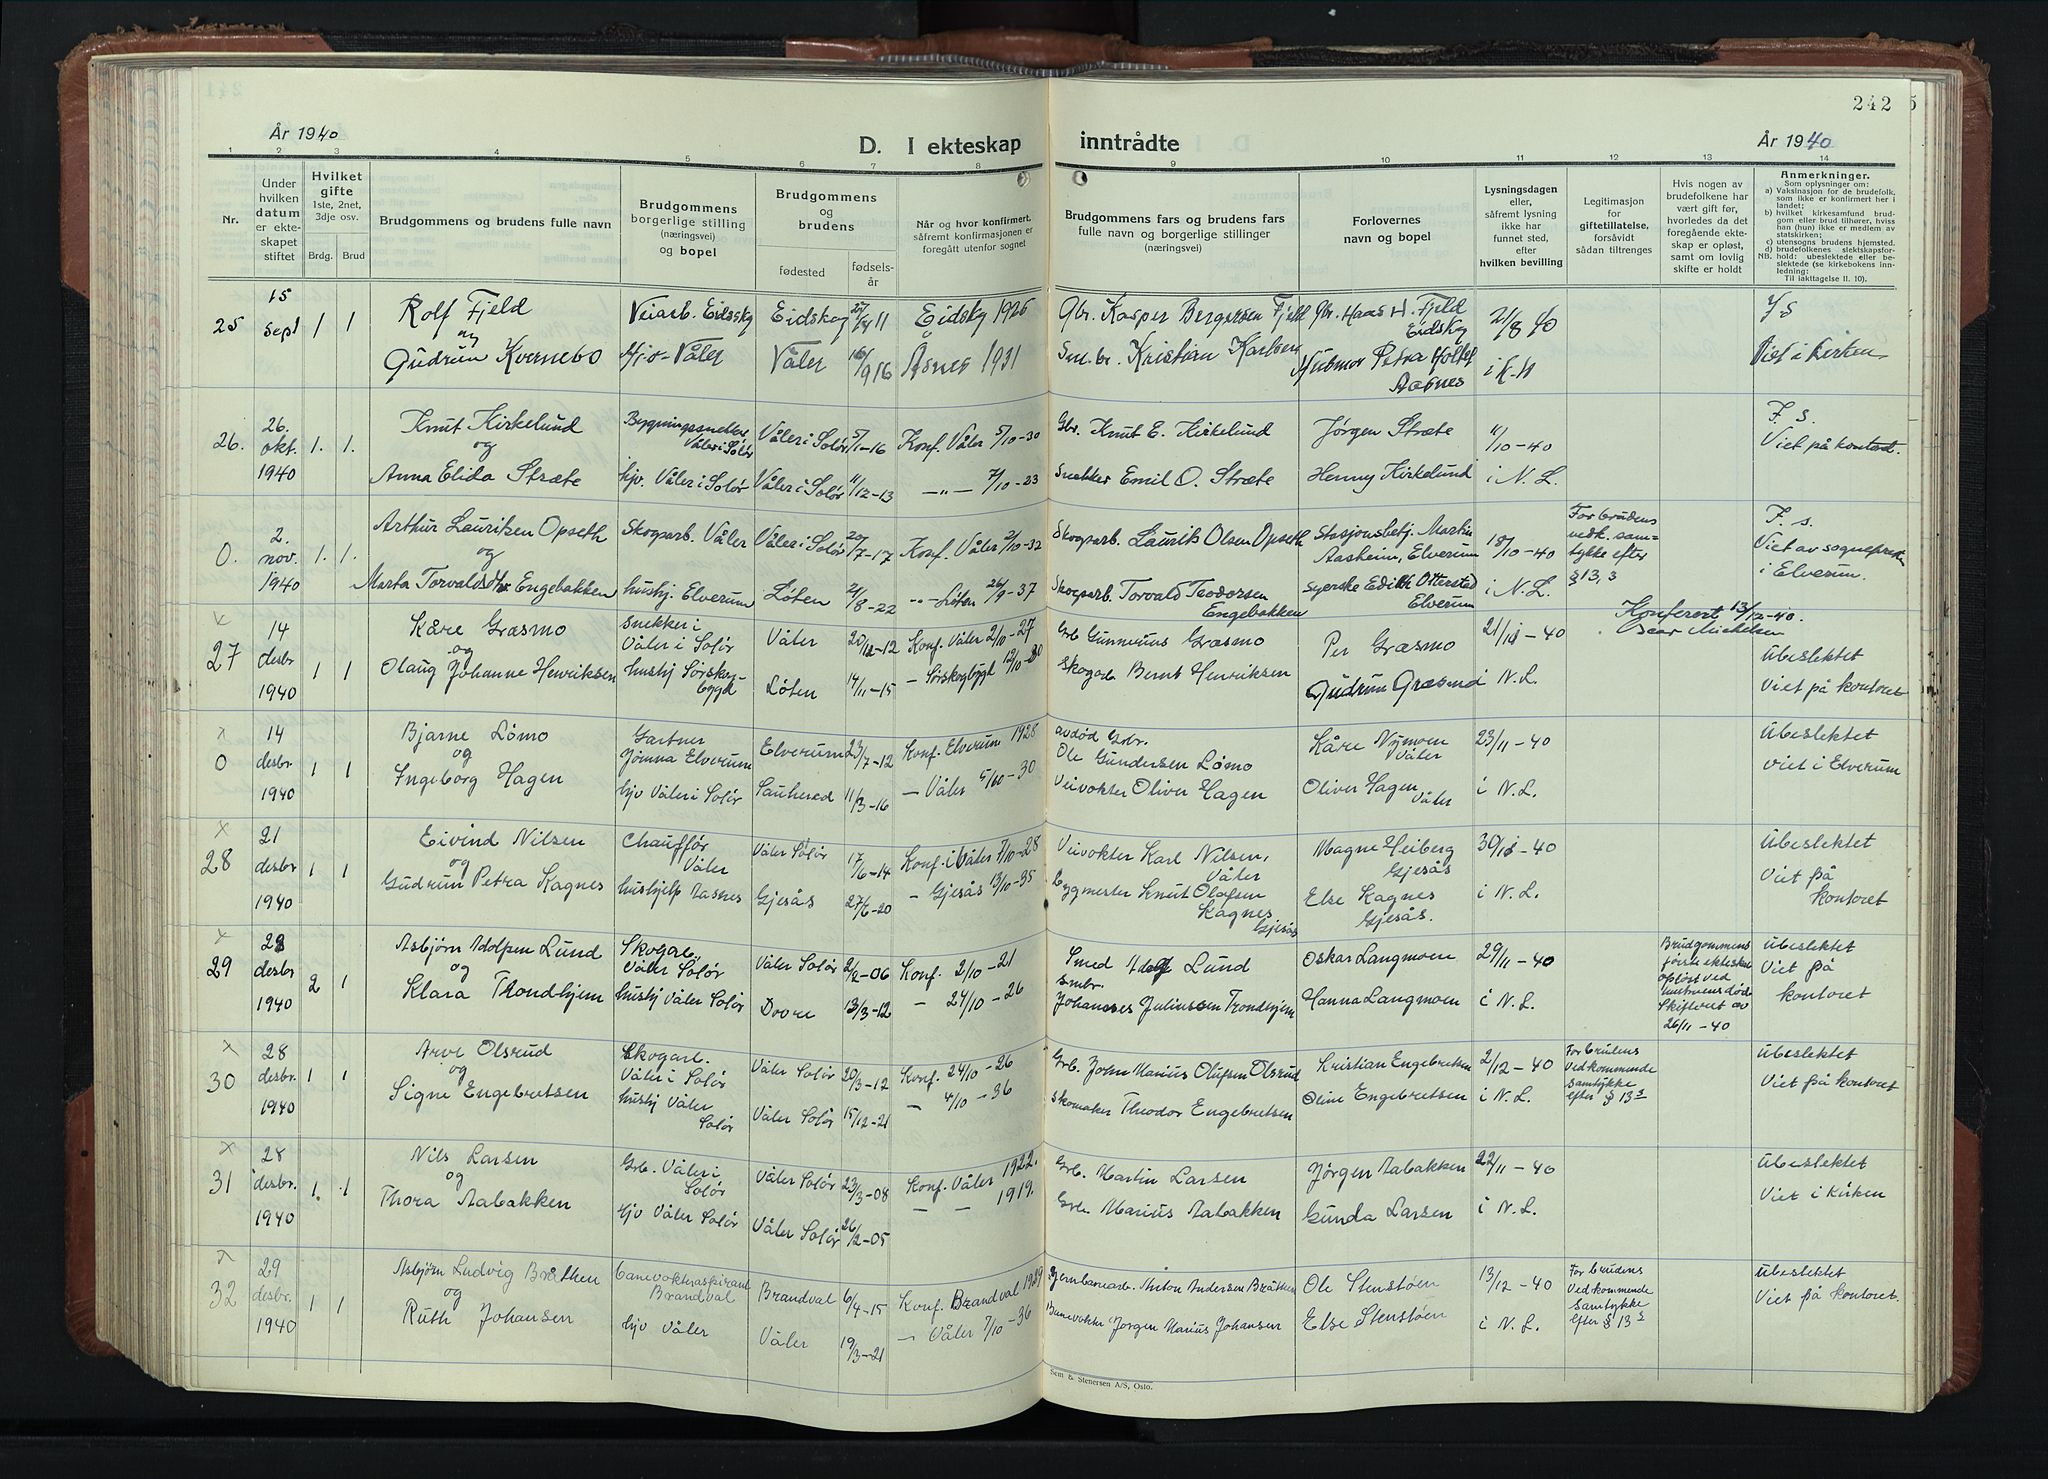 242
År 1940
D. I ekteskap inntrådte
År 1940
1 2 3 4 5 6 7 8 9 10 11 12 13 14
Nr.
Under hvilken datum er ekteskapet stiftet
Hvilket gifte 1ste, 2net, 3dje osv.
Brdg. Brud
Brudgommens og brudens fulle navn
Brudgommens borgerlige stilling (næringsvei) og bopel
Brudgommens og brudens
fødested
fødselsår
Når og hvor konfirmert, såfremt konfirmasjonen er foregått utenfor sognet
Brudgommens fars og brudens fars fulle navn og borgerlige stillinger (næringsvei)
Forlovernes navn og bopel
Lysningsdagen eller, såfremt lysning ikke har funnet sted, efter hvilken bevilling
Legitimasjon for giftetillatelse, forsåvidt sådan tiltrenges
Hvis nogen av brudefolkene har vært gift før, hvorledes da det foregående ekteskap er opløst, samt om lovlig skifte er holdt
Anmerkninger.
Som oplysninger om:
a) Vaksinasjon for de brudefolk, som ikke er konfirmert her i landet;
b) hvilket kirkesamfund brudgom eller brud tilhører, hviss han (hun) ikke er medlem av statskirken;
c) utensogns brudens hjemsted.
d) brudefolkenes slektskapsforhold: ubeslektede eller beslektede (se kirkebokens innledning:
NB. Til iakttagelse II. 10).
25 15 sept 1 1 Rolf Fjeld Veiarb. Eidskog Eidskog 27/4 11 Eidskog 1926 Gbr. Kasper Bergersen Fjeld Gbr. Haas H. Fjeld Eidskog 2/8 40
og
Gudrun Kvernebo Hj.o- Våler Våler 16/9 16 Åsnes 1931 Sm.br. Kristian Karlsen Petra Holter Aasnes i k-n Viet i kirken
26. 26. okt. 1940 1. 1. Knut Kirkelund Bygningssnekker Våler i Solør Våler i Solør 5/1-16 Konf. Våler 5/10-30 Gbr. Knut E. Kirkelund Jørgen Stræte 11/10-40 F. s.
og Viet på kontoret.
Anna Elida Stræte hjv. Våler i Solør Våler i Solør 11/12-13 —"— 7/10-23 Snekker Emil O. Stræte Henny Kirkelund i N. L.
0. 2. nov. 1940 1. 1. Arthur Lauritzen Opseth Skogsarb. Våler Våler i Solør 20/7-17 Konf. Våler 2/10-32 Skogsarb. Laurits Olsen Opseth Stasjonsbetj. Martin Aasheim, Elverum 18/10-40 For brudens vedk. samtykke efter §13,3 F. s.
og Viet av sogneprest i Elverum.
Marta Torvaldsdtr. Engebakken hushj. Elverum Løten 21/8-22 "- Løten 26/9-37 Skogsarb. Torvald Teodorsen Engebakken Syerske Edith Otterstad Elverum i N. L.
Konferert 13/12-40.
Oscar Michelsen
27 14 desbr 1940 1 1 Kåre Græsmo Snekker i Våler i Solør Våler 20/12-12 Konf. Våler 2/10-27 Grb Gunnerius Græsmo Per Græsmo 21/11-40 Ubeslektet
og
Olaug Johanne Henriksen hushj Sørskogbygd Løten 14/11-15 — Sørskogbygd 12/10-30 Skogarb. Bernt Henriksen Gudrun Græsmo i N. L. Viet på kontoret
0 14 desbr. 1940 1 1 Bjarne Lømo Gartner Jømna Elverum Elverum 23/7-12 Konf. Elverum 1928 avdød Grbr. Ole Gundersen Lømo Kåre Nymoen Våler 23/11-40 Ubeslektet
og
Ingeborg Hagen hjv Våler i Solør Sauherad 11/3-16 — Våler 5/10-30 Veivokter Oliver Hagen Oliver Hagen Våler i N. L. Viet i Elverum
28 21 desbr 1940 1 1 Eivind Nilsen Chauffør Våler Våler Solør 17/6-14 Konf. i Våler 7/10-28 Veivokter Karl Nilsen, Våler Magne Heiberg Gjesås 30/11-40 Ubeslektet
og
Gudrun Petra Kagnes hushjelp Aasnes Gjesås 27/6-20 — Gjesås 13/10-35 Bygmester Knut Olafsen Kagnes Gjesås Else Kagnes Gjesås. i N. L. Viet på kontoret
29 28 desbr 1940 2 1 Asbjørn Adolfsen Lund Skogar. Våler Solør Våler Solør 2/2-06 Konf. 2/10-21 Smed Adolf Lund Oskar Langmoen 29/11-40 Brudgommens første ekteskap opløst ved hustruens død Skifteret av 26/11-40 Ubeslektet
og
Klara Trondhjem hushj Våler Solør Dovre 13/3-12 — 24/10-26 Smbr. Johannes Juliussen Trondhjem Hanna Langmoen i N. L. Viet på kontoret
30 28 desbr. 1940 1 1 Arve Olsrud Skogarb. Våler i Solør Våler Solør 20/3-12 Konf. 24/10-26 Grb. John Marius Olufsen Olsrud Kristian Engebretsen 2/12-40 For brudens Vedkommende samtykke efter § 13³ Ubeslektet
og
Signe Engebretsen hushj Våler Solør Våler Solør 15/12-21 — 4/10-36 Skomaker Theodor Engebretsen Oline Engebretsen i N. L. Viet på kontoret
31 28 desbr. 1940 1. 1 Nils Larsen Grb. Våler i Solør Våler Solør 23/3-08 Konf. Våler 1922. Grb. Martin Larsen Jørgen Aabakken 22/11-40 Ubeslektet
og
Thora Aabakken hjv Våler Solør Våler Solør 26/2-05 — — 1919. Grb. Marius Aabakken Gunda Larsen i N. L. Viet i Kirken
32 29 desbr. 1940 1 1 Asbjørn Ludvig Bråthen banevokteraspirant Brandval Brandval 6/4-15 Konf. Brandval 1929 Jernbanearb. Anton Andersen Bråthen Ole Stenstøen 13/12-40 For brudens Vedkommende Samtykke efter § 13³ Ubeslektet
og
Ruth Johansen hjv Våler Våler 19/3-21 — Våler 7/10-36 Banevokter Jørgen Marius Johansen Else Stenstøen i N. L. Viet på kontoret.
Sem & Stenersen A/S, Oslo.